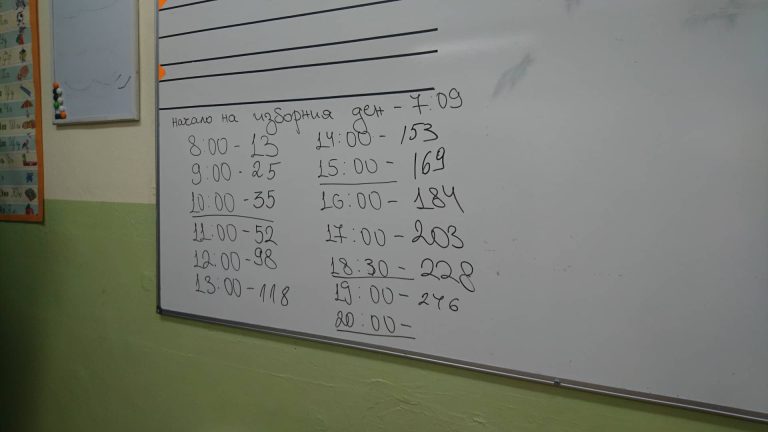 начало на изборния ден - 7:09
8:00 - 13
9:00 - 25
10:00 - 35
11:00 - 52
12:00 - 98
13:00 - 118
14:00 - 153
15:00 - 169
16:00 - 184
17:00 - 203
18:30 - 228
19:00 - 246
20:00 -